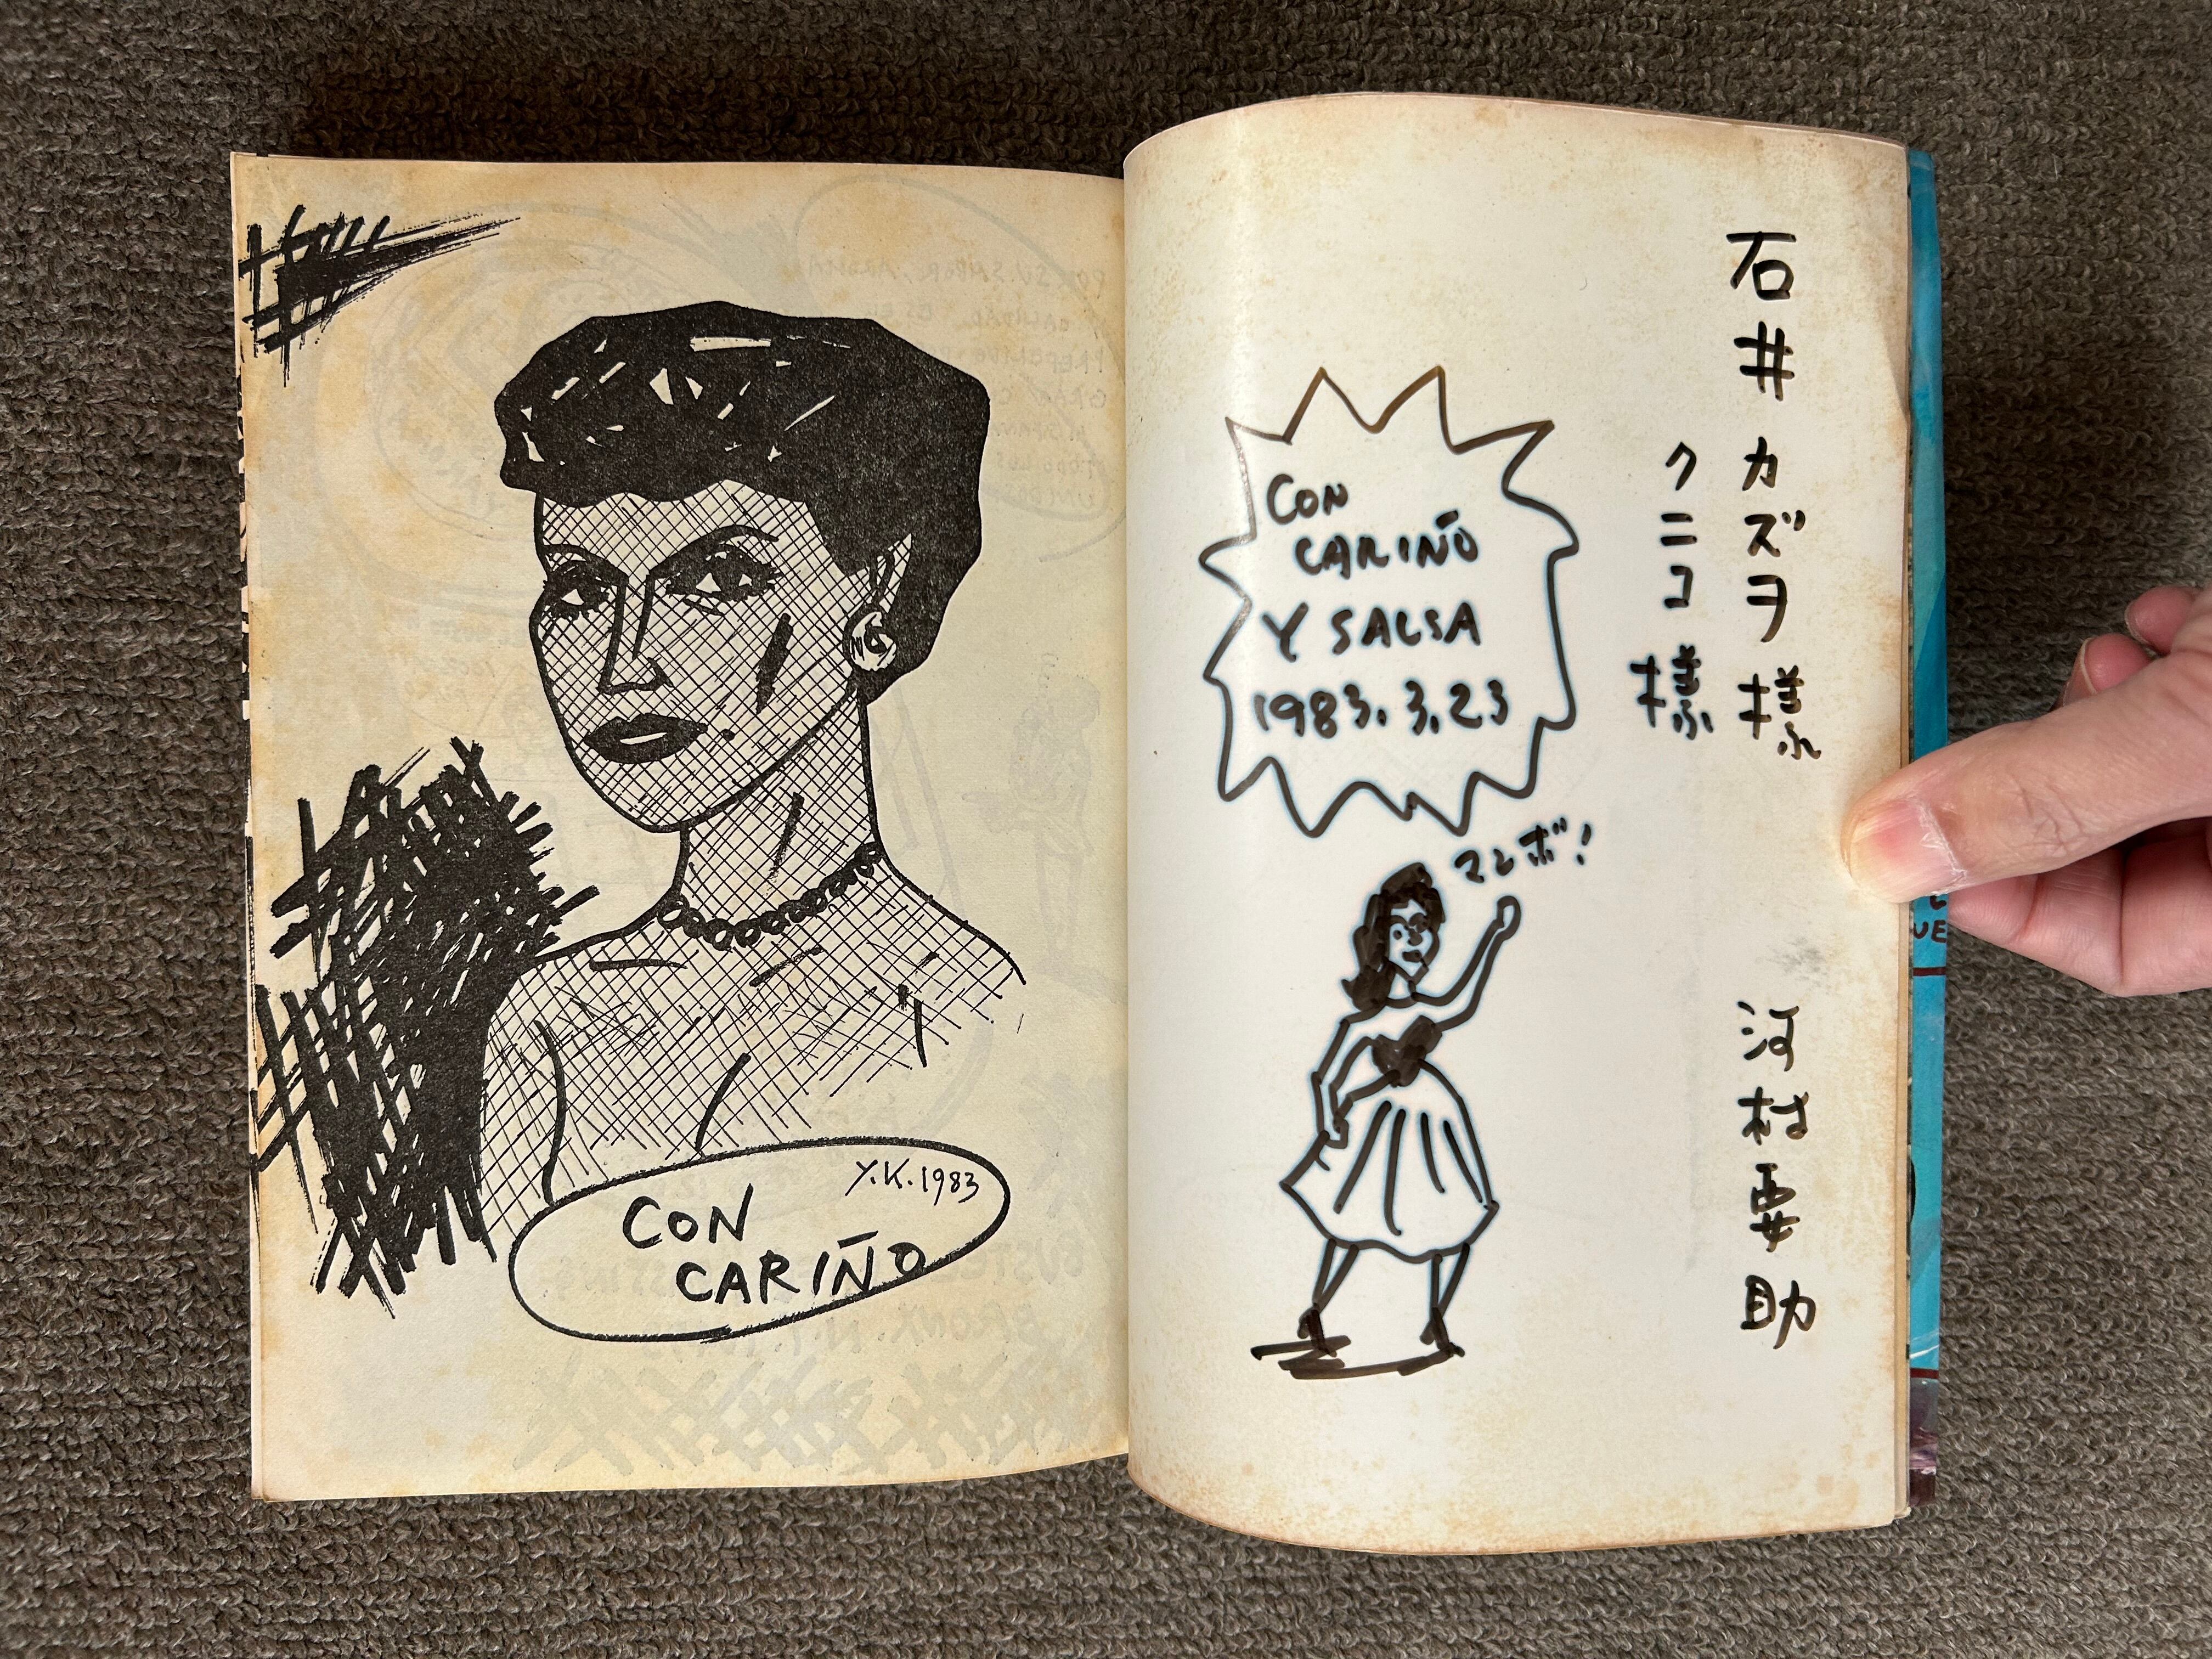 Y.K.1983
CON
CARIÑO
石井カズヲ様
クニコ様
河村要助
CON
CARIÑO
Y SALSA
1983.3.23
マンボ!
UE